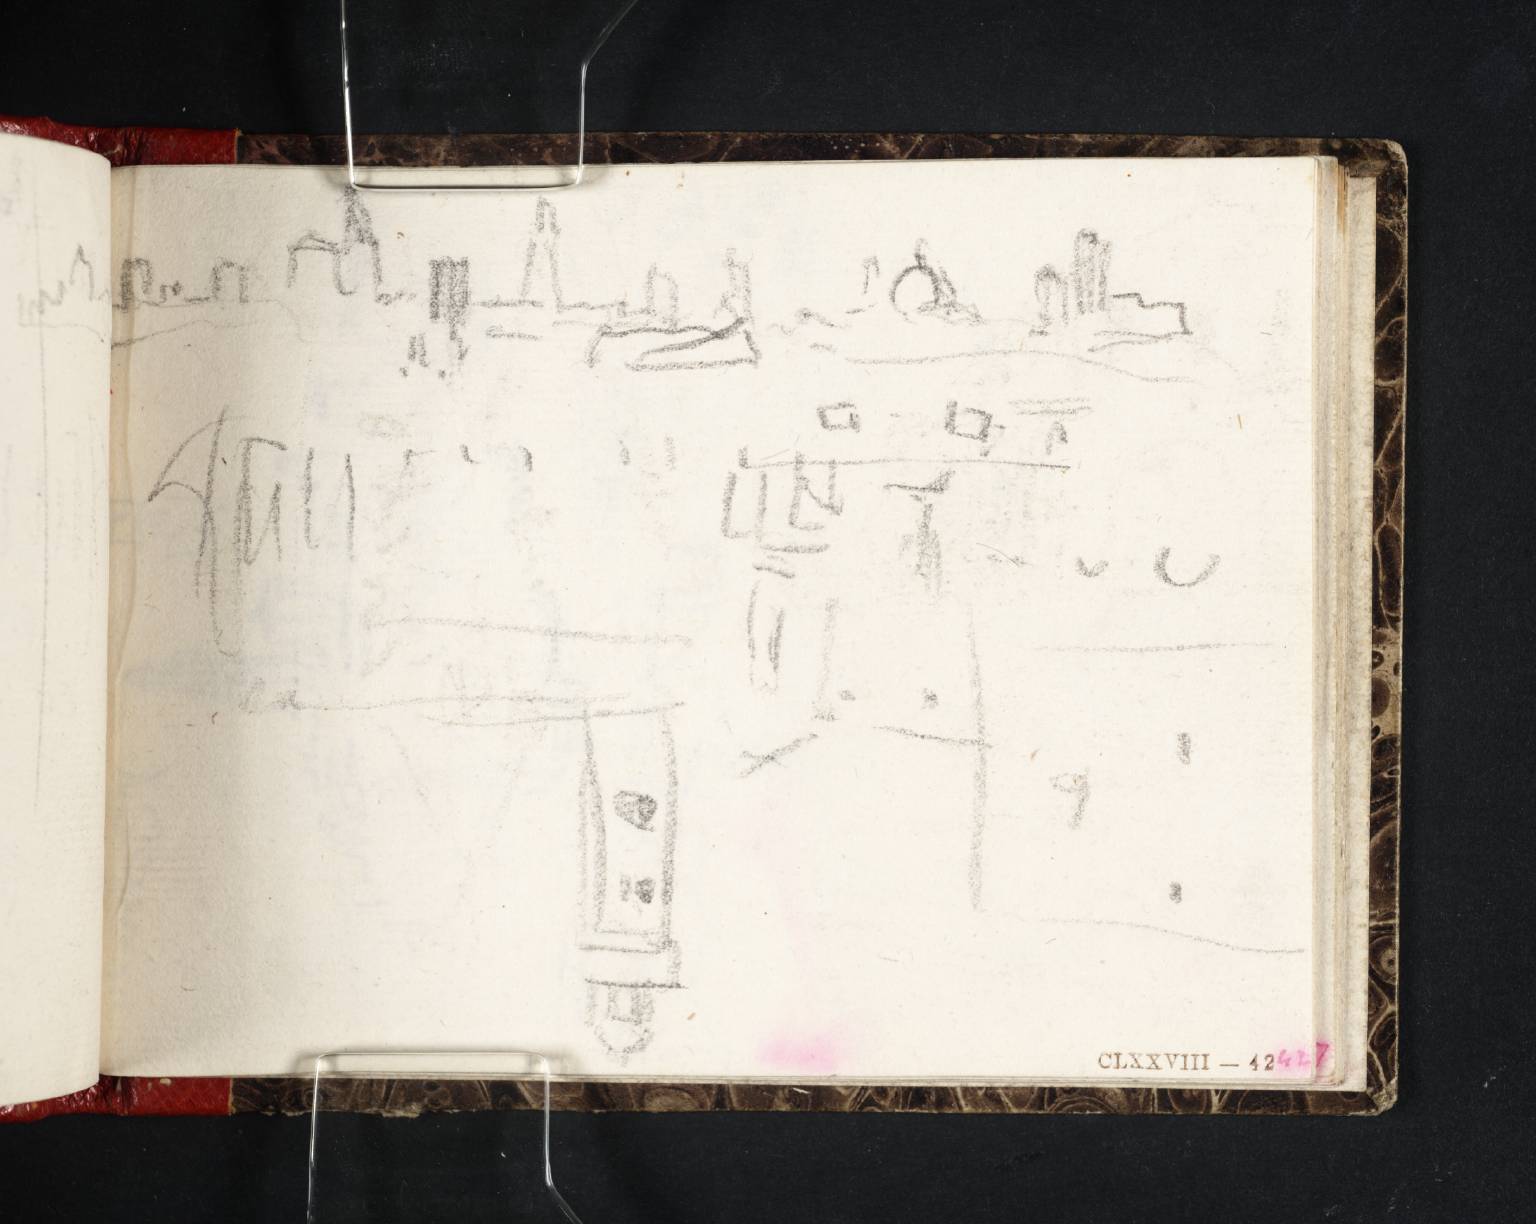 CLXXVIII — 42
427